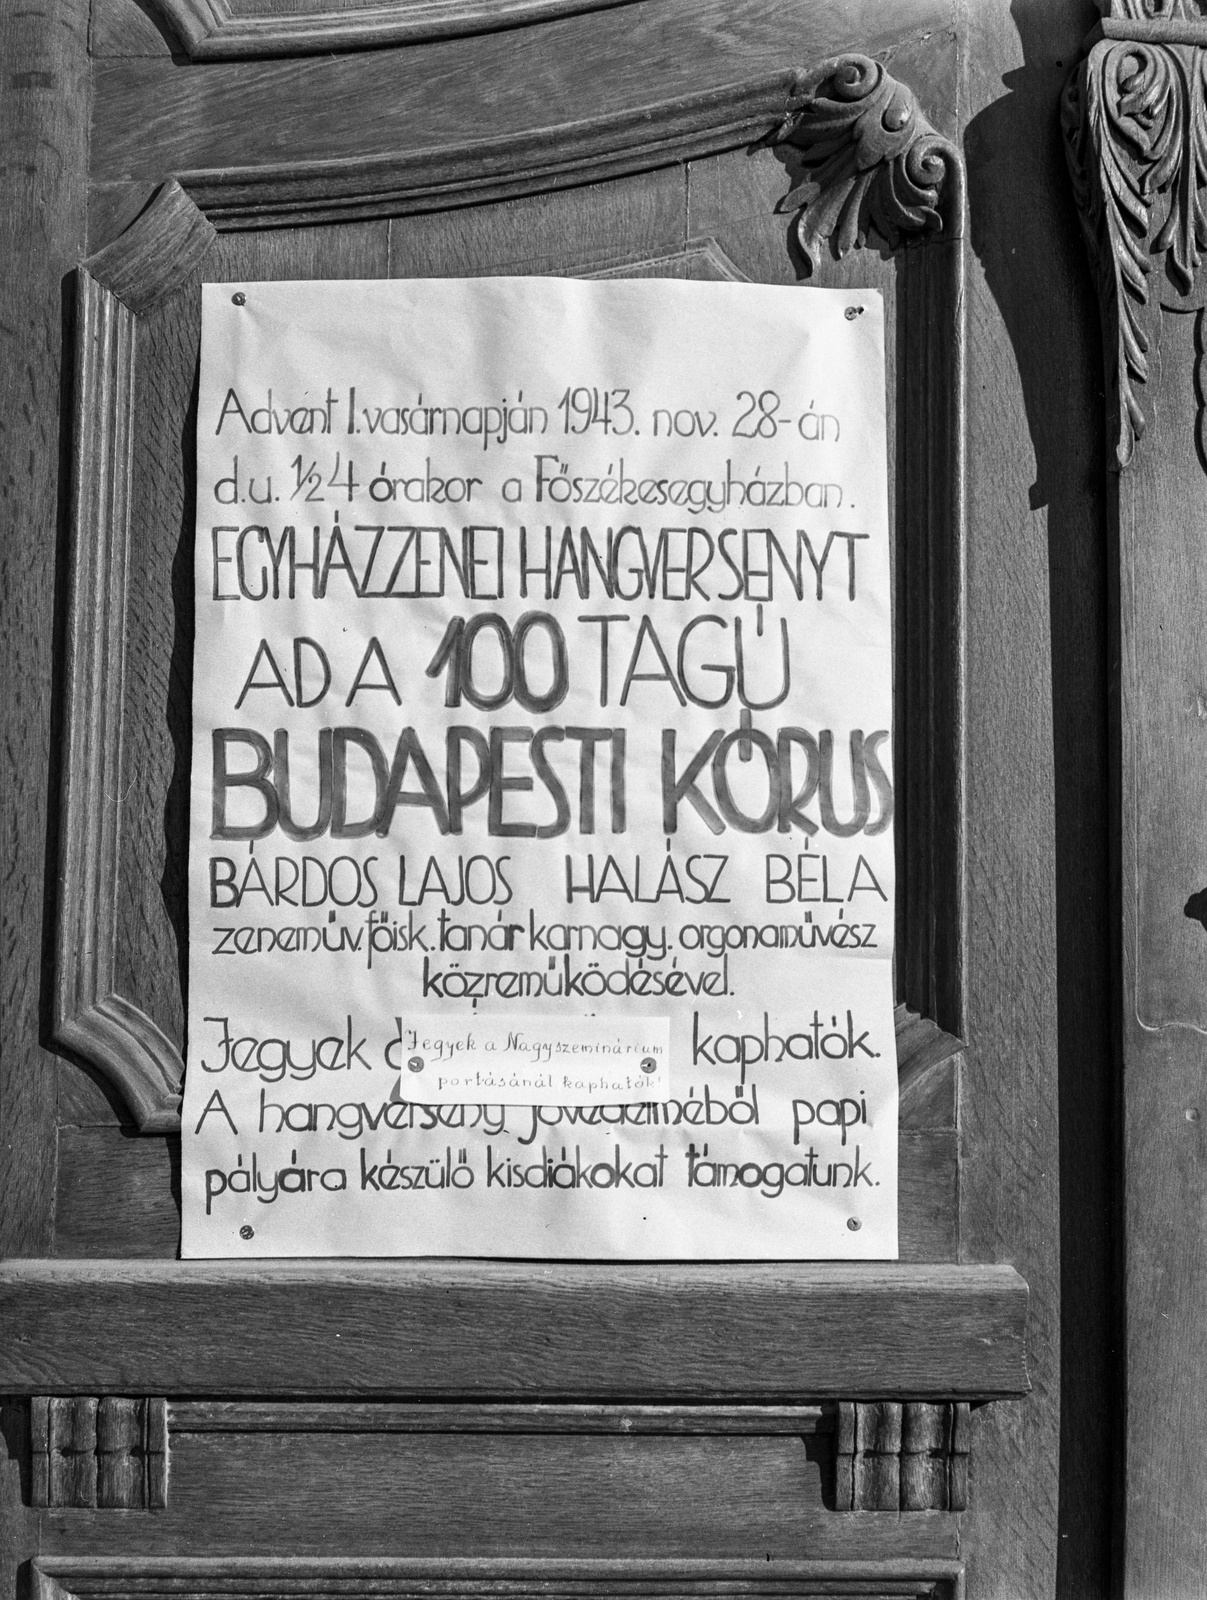 Advent I. vasárnapján 1943. nov. 28-án
d.u. ½4 órakor a Főszékesegyházban.
EGYHÁZZENEI HANGVERSENYT
AD A 100 TAGÚ
BUDAPESTI KÓRUS
BÁRDOS LAJOS HALÁSZ BÉLA
zeneműv. főisk. tanár karnagy. orgonaművész
közreműködésével.
Jegyek kaphatók.
Jegyek a Nagyszeminárium
portásánál kaphatók!
A hangverseny jövedelméből papi
pályára készülő kisdiákokat támogatunk.